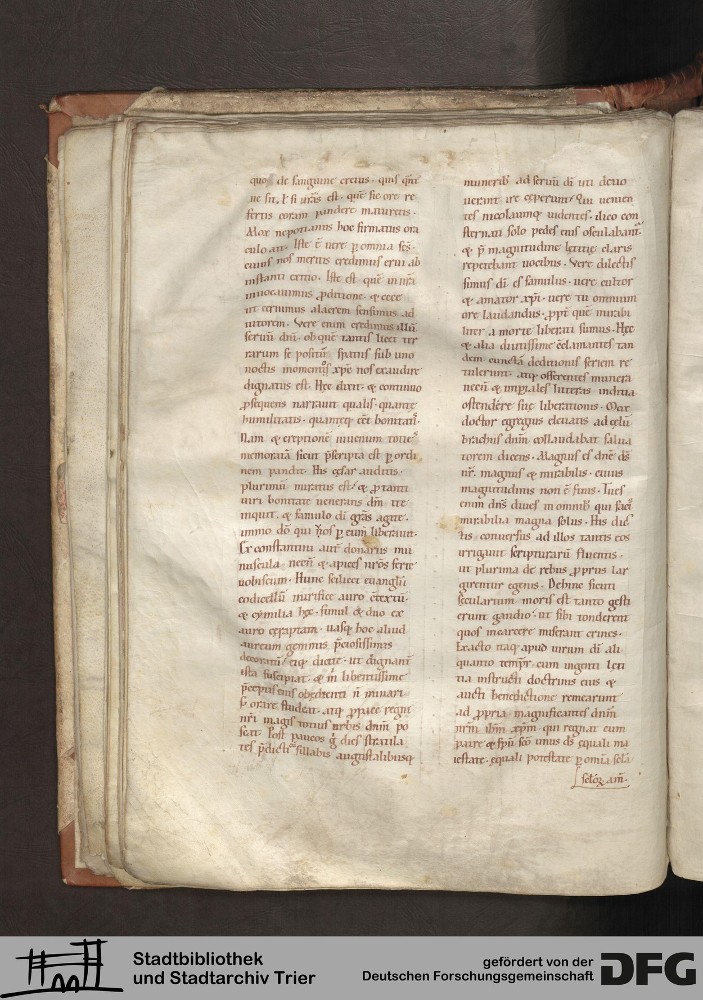 quo de sanguine cretus. quis qm̄
ue sit, ł si ur̄as est. que sic ore re
fertis coram pandere maturetis.
Mox nepotianus hoc firmatus ora
culo ait. Iste ē uere ꝑ omnia ses.
cuius nos meritis credimus erui ab
instanti exitio. Iste est que in nr̄a
inuocauimus ꝑditione. & ecce
ut cernimus alacrem sensimus ad
iutorem. Vere enim credimus illū
seruū dn̄i. ob que tantis licet ter
rarum se positū spatiis sub uno
noctis momento xp̄c nos exaudire
dignatus est. Hęc dixit. & continuo
ꝓsequens narrauit qualis. quantę
humilitatis. quamtęq; eēt bonitatis.
Nam & ereptione iuuenum totiens
memoratā sicut p̄scripta est ꝑ ordi
nem pandit. His cęsar auditis
plurimū miratus est. & ꝓ tanti
uiri bonitate uenerans dn̄m ite
inquit. & famulo dī gr̄as agite.
immo dō qui uos ꝑ eum liberauit.
Ex constantini aut donariis mu
nuscula necñ & apices nr̄os ferte
uobiscum. Hunc scilicet euangłii
codicellū mirifice auro cētextū.
& cymilia hęc. simul & duo ex
auro
aureum gemmis p̄ciosissimis
decoratū. eiq; dicite. ut dignant
ista suscipiat. & m libentissime
p̄ceptis eius obędienti ñ minari
ꝑ orare studeat. atq; ꝓ pace regni
nr̄i magis totius urbis dn̄m po
scat. Post paucos g̊ dies stratila
tes p̄dicti sillabis augustalibusq;
munerib; ad seruū dī iñ deuo
uerant ire ceperunt. Qui uenien
tes nicolaumq; uidentes. ilico con
sternati solo pedes eius osculabant.
& p̄ magnitudine letitię claris
repetebant uocibus. Vere dilectis
simus dī es famulus. uere cultor
& amator xp̄i. uere tu omnium
ore laudandus. ꝓpt que mirabi
liter a morte liberati sumus. Hęc
& alia diutissime cēlamantes tan
dem cunctā deditionis seriem re
tulerunt. atq; offerentes munera
necñ & imꝑiales litteras inditia
ostendere suę liberationis. Mox
doctor egregius eleuatis ad cęlū
brachiis dn̄m collaudabat salua
torem dicens. Magnus es dn̄e ds̄
nr̄. magnus & mirabilis. cuius
magnitudinis non ē finis. Tu es
enim dn̄s diues in omnib; qui facis
mirabilia magna solus. His dic
tis conuersus ad illos tantis eos
irrigauit scripturarū fluentis.
ut plurima de rebus ꝓpriis lar
girentur egenis. Dehinc sicuti
sęcularium moris est tanto gesti
erunt gaudio. ut sibi tonderent
quos nutrierant crines.
Exacto itaq; apud uirum dī ali
quanto tempr̄e cum ingenti leti
tia instructi doctrinis eius &
aucti benedictione remearunt
ad ꝓpria magnificantes dn̄m
nr̄m ih̄m xp̄m. qui regnat cum
patre & sp̄u sc̄o unus ds̄ equali ma
iestate. equali potestate ꝑ om̄ia sęla
sęloꝝ. am̄.
Stadtbibliothek
und Stadtarchiv Trier
gefördert von der
Deutschen Forschungsgemeinschaft
DFG